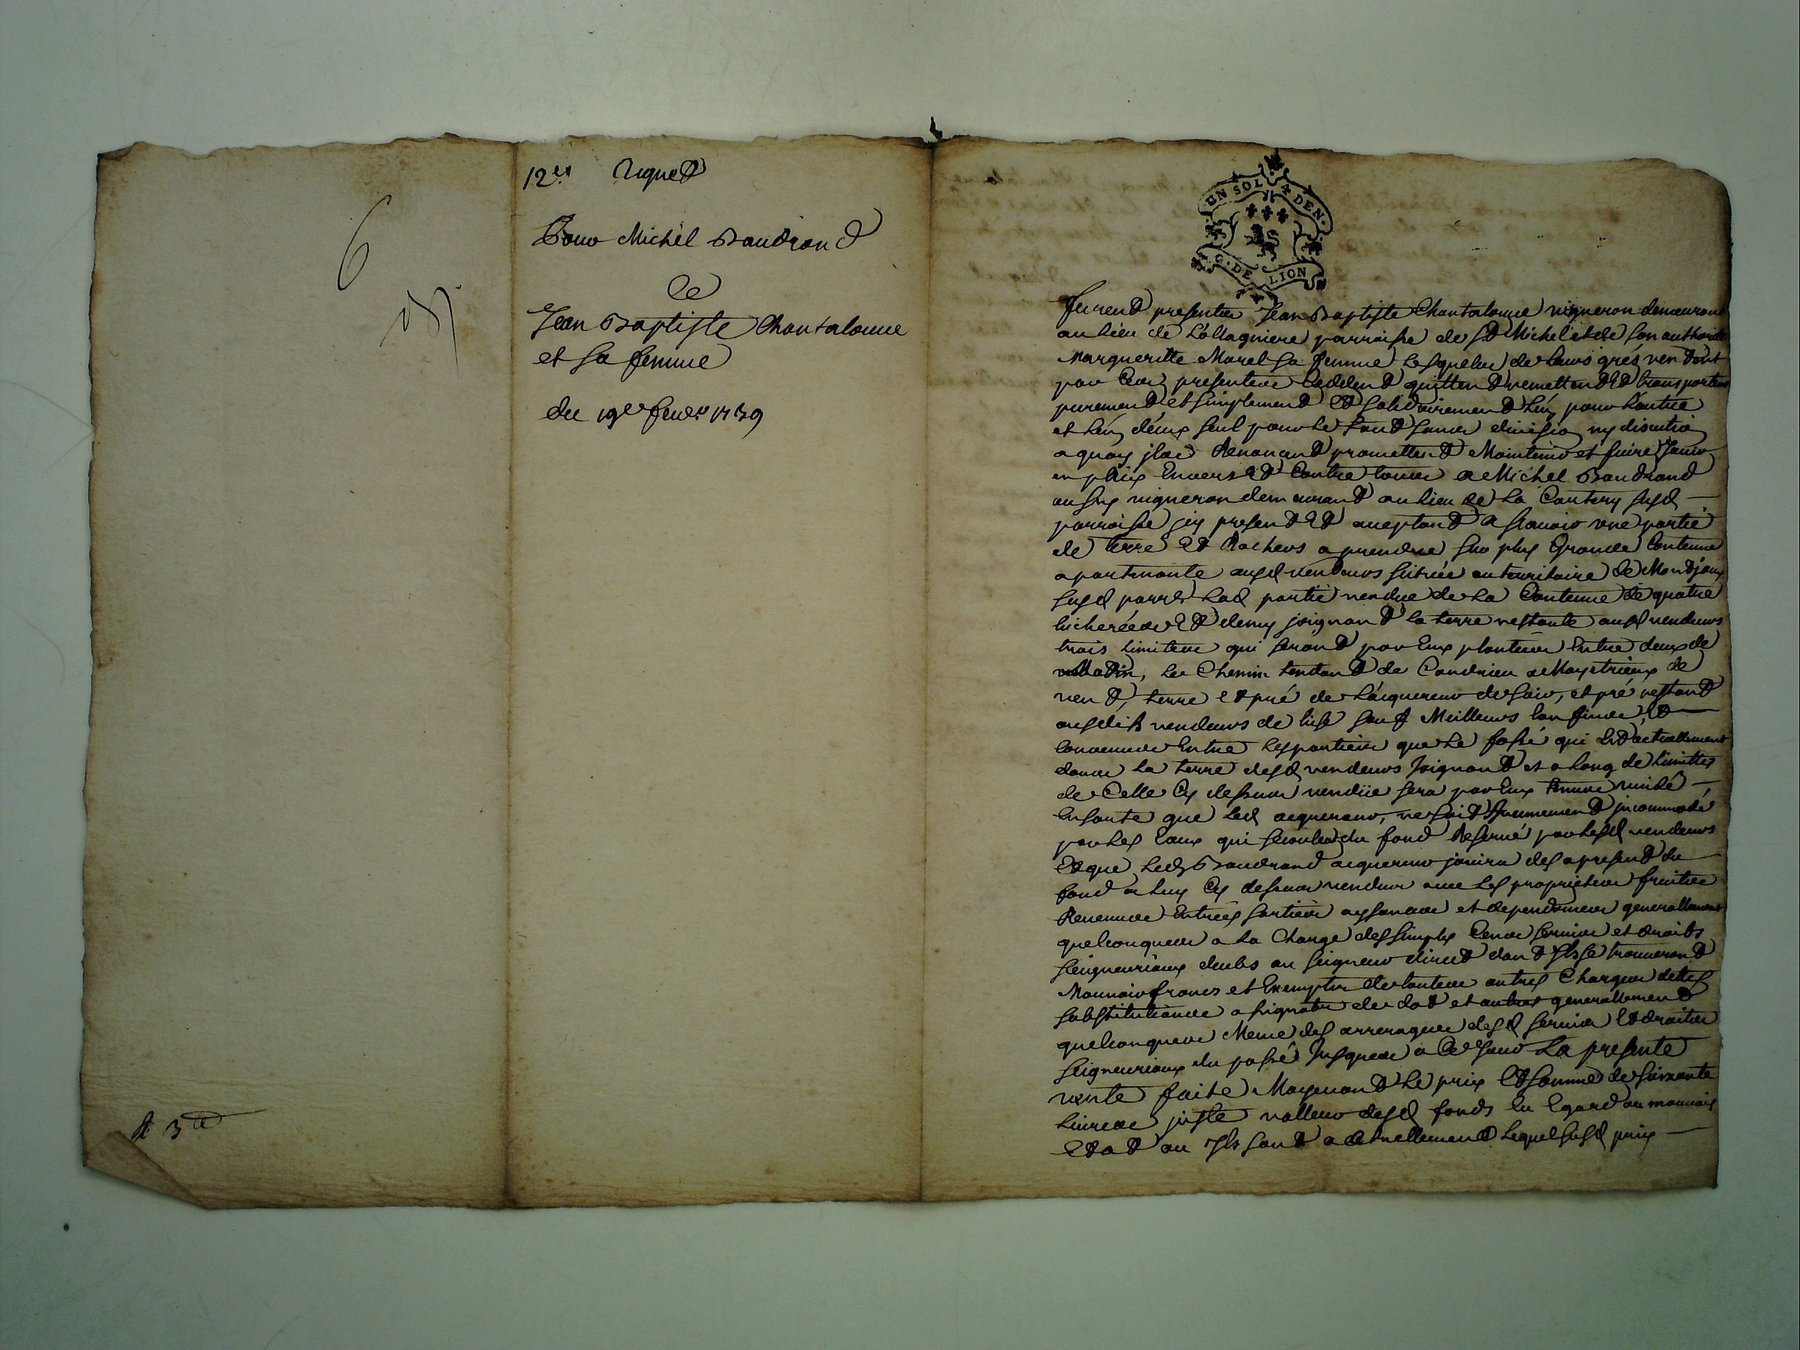 6
12es
Pour Michel Baudrand
De
Jean Baptiste Chantalouue
et Sa femme
du 19e feuer 1759
A 3
UN SOL 4 DEN.
G. DE LION
furend presentes Jean Baptiste Chantalouue vigneron demeurand
au lieu de parroisse de St Michel et de son authorité
Margueritte Morel Sa femme Lesquels de leurs grés vendent
par Ces presentes Ceddent quittend remettend Et transportent
purement et simplement Et solidairement L'un pour L'autre
et L'un d'eux seul pour Le tout sans division ny discution
a quoy ils Renoncend promettend Maintenir et faire Jouir
en paix Envers Et Contre tous a Michel Baudrand
aussy vigneron demeurand au lieu de La susd
parroisse icy presend Et aceptand a scauoir une partie
de terre Et Rochers a prendre sur plus Grande Contenue
apartenante ausd vendeurs scituée au territoire de Montjoux
susd parre Lad partie vendue de La Contenue de quatre
bicherées Et demy joignand la terre restante ausd vendeurs
trois Limites qui serond par Eux plantées Entre deux de
Matin, Le Chemin tendand de Condrieu a de
vend, terre Et pré de L'acquereur de soir, et pré restand
ausdits vendeurs de bise sauf Meilleurs Confins, Et
convenue Entre Les parties que Le fossé qui Est actuellement
dans La terre desd vendeurs Joignand et a Long de Limittes
de Celle Cy dessus vendüe sera par Eux tenue vuidé
Ensorte que Led acquereur, ne soit incommodé
par Les Eaux qui du fond Reservé par Lesd vendeurs
Et que Led Baudrand acquereur jouira des apresend du
fond a Luy Cy dessus vendus avec Les proprietés fruittes
Revenues Entrées sorties aysances et dependences generallement
quelconques a La Charge des simples Cens servies et droits
seigneuriaux deubs au seigneur direct dond Ils se trouverond
Mouuoir francs et Exemptes de toutes autres Charges dettes
substitutions de dot et autres generallemend
quelconques Meme des arrerages desd servies Et droittes
seigneuriaux du passé Jusques a Ce Jour La presente
vente faite Moyenand Le prix Et somme de soixante
Livres juste valleur desd fonds Eu Egard au mauvais
Etat ou Ils sond actuellemend Lequel susd prix